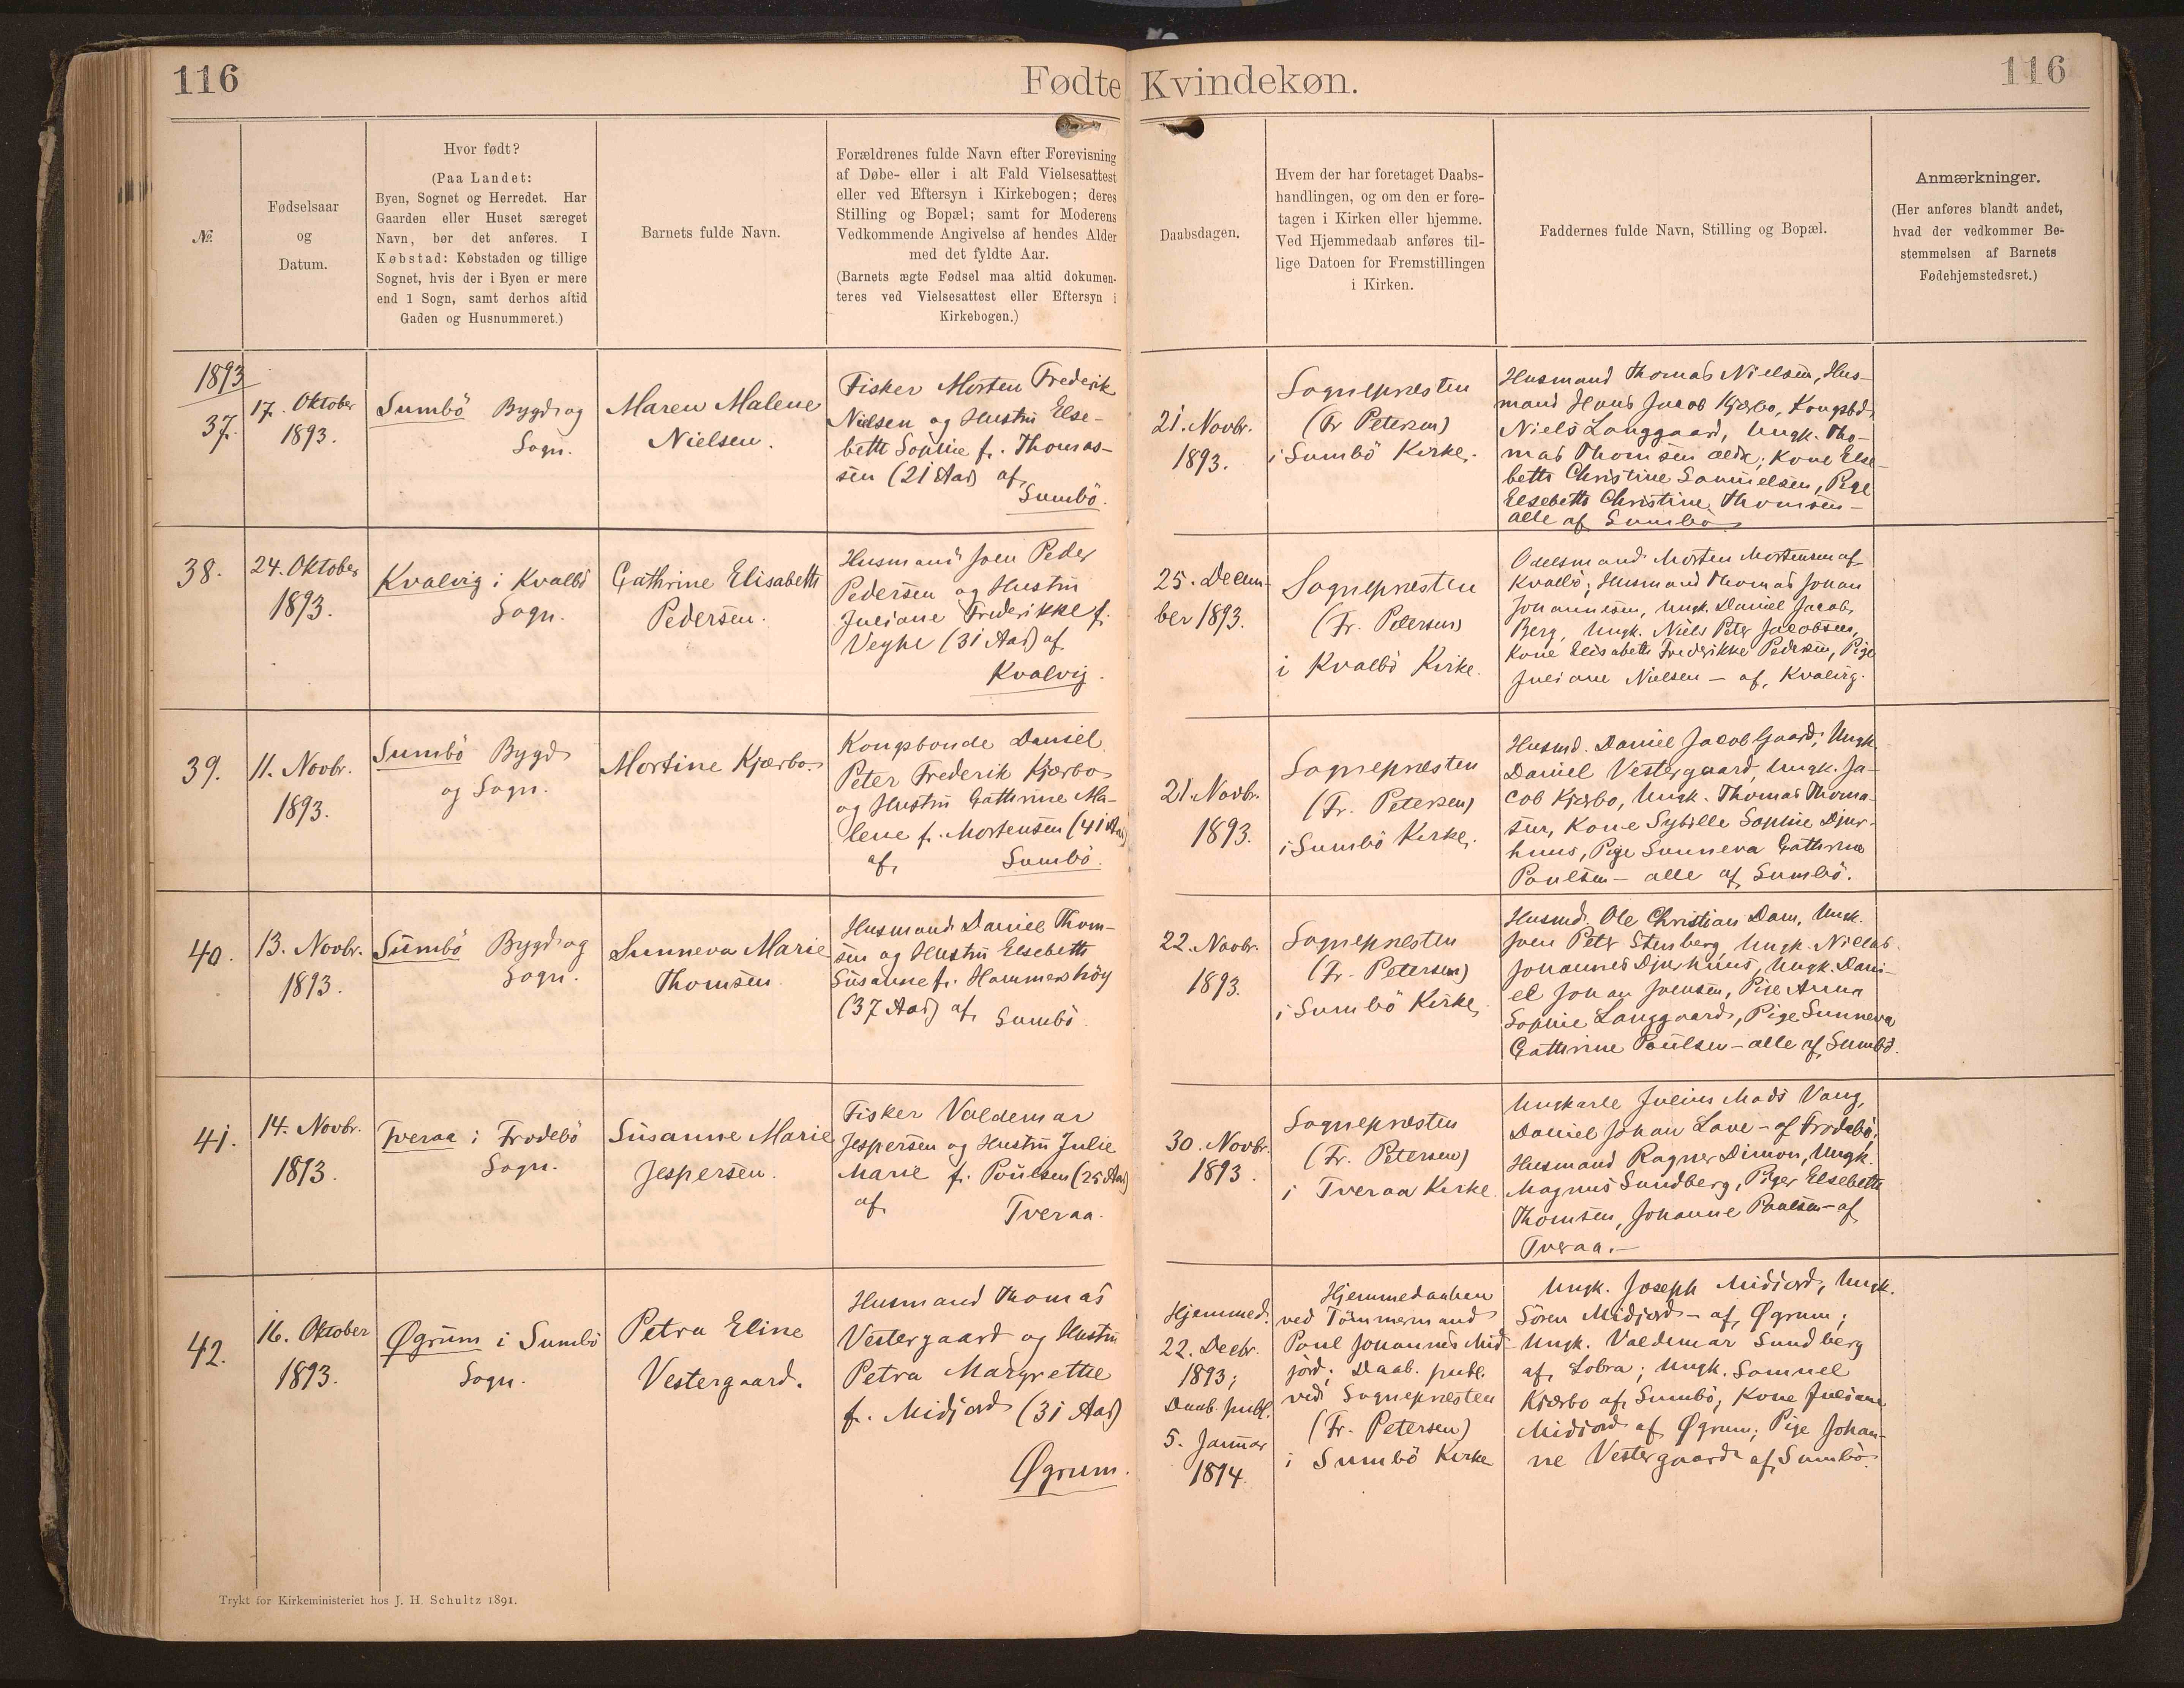 116
Fødte
Kvindekøn.
116
№.
Fødselsaar
og
Datum.
Hvor født?
(Paa Landet:
Byen, Sognet og Herredet. Har
Gaarden eller Huset særeget
Navn, bør det anføres. I
Købstad: Købstaden og tillige
Sognet, hvis der i Byen er mere
end 1 Sogn, samt derhos altid
Gaden og Husnummeret.)
Barnets fulde Navn.
Forældrenes fulde Navn efter Forevisning
af Døbe- eller i alt Fald Vielsesattest
eller ved Eftersyn i Kirkebogen; deres
Stilling og Bopæl; samt for Moderens
Vedkommende Angivelse af hendes Alder
med det fyldte Aar.
(Barnets ægte Fødsel maa altid dokumen-
teres ved Vielsesattest eller Eftersyn i
Kirkebogen.)
Daabsdagen.
Hvem der har foretaget Daabs-
handlingen, og om den er fore-
tagen i Kirken eller hjemme.
Ved Hjemmedaab anføres til-
lige Datoen for Fremstillingen
i Kirken.
Faddernes fulde Navn, Stilling og Bopæl.
Anmærkninger.
(Her anføres blandt andet,
hvad der vedkommer Be-
stemmelsen af Barnets
Fødehjemstedsret.)
1893
37.
17. Oktober
1893.
Sumbö Bygd og
Sogn.
Maren Malene
Nielsen.
Fisker Morten Frederik
Nielsen og Hustru Else-
beth Sophie f. Thomas-
sen (21 Aar) af
Sumbö.
21. Novbr.
1893.
Sognepræsten
(Fr Petersen)
i Sumbö Kirke.
Husmand Thomas Nielsen, Hus-
mand Hans Jacob Kjærbo, Kongsbd.
Niels Langgaard, Ungk. Tho-
mas Thomsen ældr; Kone Else-
beth Christine Samuelsen, Pige
Elsebeth Christine Thomsen -
alle af Sumbö
38.
24. Oktober
1893.
Kvalvig i Kvalbö
Sogn.
Cathrine Elisabeth
Pedersen.
Husmand Joen Peder
Pedersen og Hustru
Juliane Frederikke f.
Veyhe (31 Aar) af
Kvalvig.
25. Decem-
ber 1893.
Sognepræsten
(Fr. Petersen)
i Kvalbö Kirke.
Odelsmand Morten Mortensen af
Kvalbö; Husmand Thomas Johan
Johannesen, Ungk. Daniel Jacob
Berg, Ungk. Niels Peter Jacobsen,
Kone Elisabeth Frederikke Pedersen, Pige
Juliane Nielsen - af Kvalvig.
39.
11. Novbr.
1893.
Sumbö Bygd
og Sogn.
Mortine Kjærbo.
Kongsbonde Daniel
Peter Frederik Kjærbo
og Hustru Cathrine Ma-
lene f. Mortensen (41 Aar)
af Sumbö.
21. Novbr.
1893.
Sognepræsten
(Fr. Petersen)
i Sumbö Kirke.
Husmd. Daniel Jacob Gaard, Ungk.
Daniel Vestergaard, Ungk. Ja-
cob Kjærbo, Ungk. Thomas Thoma-
sen, Kone Sybille Sophie Djur-
huus, Pige Sunneva Cathrine
Poulsen - alle af Sumbö.
40.
13. Novbr.
1893.
Sumbö Bygd og
Sogn.
Sunneva Marie
Thomsen.
Husmand Daniel Thom-
sen og Hustru Elsebeth
Susanne f. Hammershöy
(37 Aar) af Sumbö.
22. Novbr.
1893.
Sognepræsten
(Fr. Petersen)
i Sumbö Kirke.
Husmd. Ole Christian Dam, Ungk.
Joen Peter Stenberg, Ungk. Niclas
Johannes Djurhuus, Ungk. Dani-
el Johan Joensen, Pige Anna
Sophie Langgaard, Pige Sunneva
Cathrine Poulsen - alle af Sumbö.
41.
14. Novbr.
1893.
Tveraa i Frodebö
Sogn.
Susanne Marie
Jespersen.
Fisker Valdemar
Jespersen og Hustru Julie
Marie f. Poulsen (25 Aar)
af Tveraa.
30. Novbr.
1893.
Sognepræsten
(Fr. Petersen)
i Tveraa Kirke.
Ungkarle Julius Mads Vang,
Daniel Johan Lave - af Frodebö;
Husmand Ragner Dimon, Ungk.
Magnus Sundberg, Piger Elsebeth
Thomsen, Johanne Poulsen - af
Tveraa. -
42.
16. Oktober
1893.
Øgrum i Sumbö
Sogn.
Petra Eline
Vestergaard.
Husmand Thomas
Vestergaard og Hustru
Petra Margrethe
f. Midjord (31 Aar)
Øgrum.
Hjemmed.
22. Decbr.
1893;
Daab. publ.
5. Januar
1894.
Hjemmedaaben
ved Tömmermand
Poul Johannes Mid-
jord; Daab. publ.
ved Sognepræsten
(Fr. Petersen)
i Sumbö Kirke
Ungk. Joseph Midjord, Ungk.
Sören Midjord - af Øgrum;
Ungk. Valdemar Sundberg
af Lobra; Ungk. Samuel
Kjærbo af Sumbö; Kone Juliane
Midjord af Øgrum; Pige Johan-
ne Vestergaard af Sumbö.
Trykt for Kirkeministeriet hos J. H. Schultz 1891.